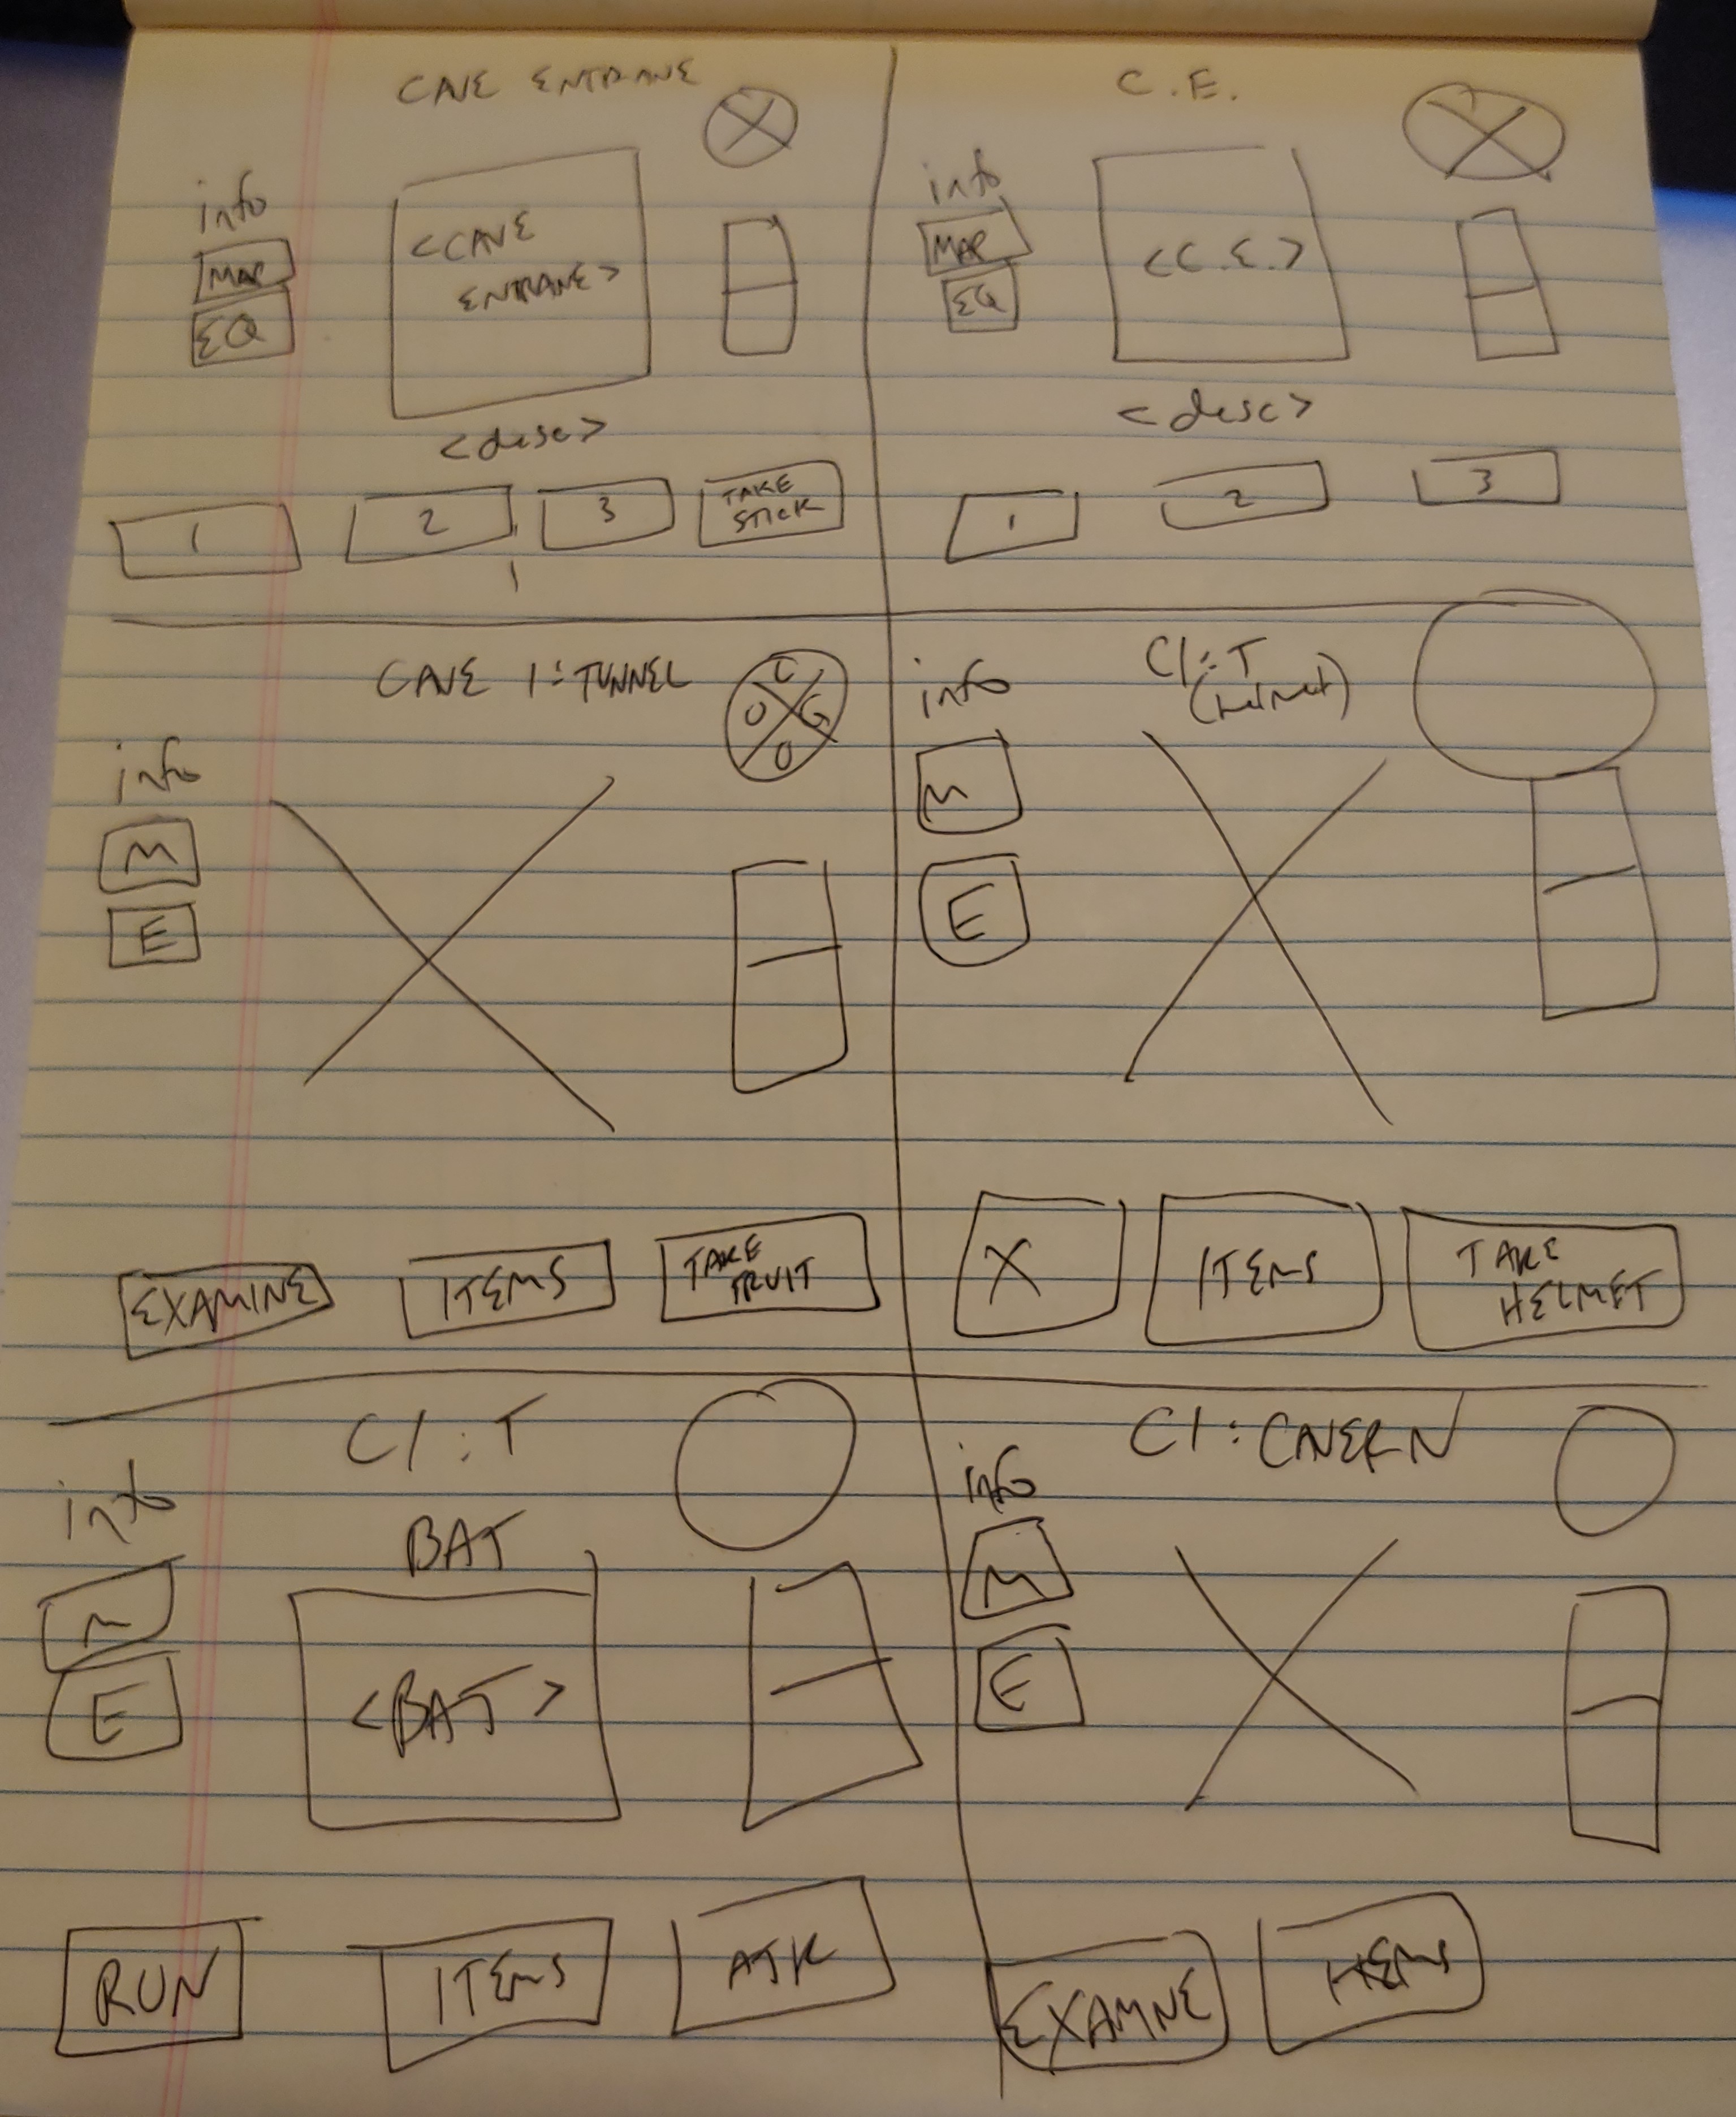 CAVE ENTRANE
info
MAP
EQ
<CAVE
ENTRANE>
<desc>
1
2
3
TAKE
STICK
C.E.
info
MAP
EQ
<C.E.>
<desc>
1
2
3
CAVE 1: TUNNEL
info
M
E
U
G
O
EXAMINE
ITEMS
TAKE
FRUIT
C1:T
(helmet)
info
M
E
X
ITEMS
TAKE
HELMET
C1:T
info
M
E
BAT
<BAT>
RUN
ITEMS
ATK
C1: CAVERN
info
M
E
EXAMNE
ITEMS